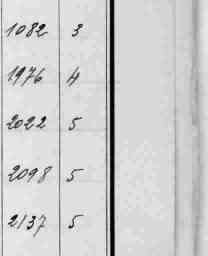 1082 3
1976 4
2022 5
2098 5
2137 5